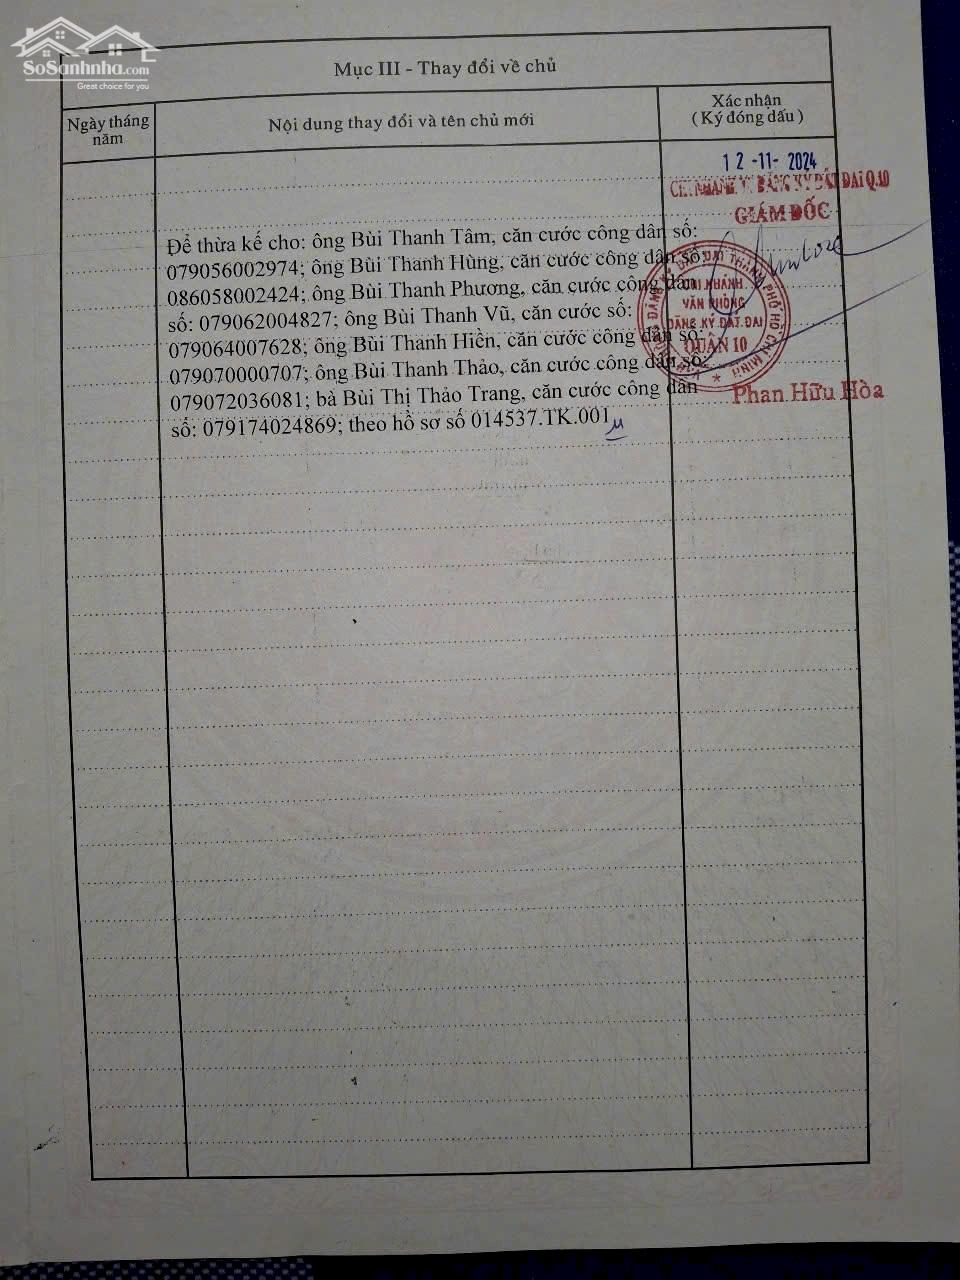 SoSanhnha.com
Great choice for you
Mục III - Thay đổi về chủ
Ngày tháng năm
Nội dung thay đổi và tên chủ mới
Xác nhận
( Ký đóng dấu )
12 -11- 2024
CHI NHÁNH VP ĐĂNG KÝ ĐẤT ĐAI Q.10
GIÁM ĐỐC
Để thừa kế cho: ông Bùi Thanh Tâm, căn cước công dân số:
079056002974; ông Bùi Thanh Hùng, căn cước công dân số:
086058002424; ông Bùi Thanh Phương, căn cước công dân
số: 079062004827; ông Bùi Thanh Vũ, căn cước số:
079064007628; ông Bùi Thanh Hiền, căn cước công dân số:
079070000707; ông Bùi Thanh Thảo, căn cước công dân số:
079072036081; bà Bùi Thị Thảo Trang, căn cước công dân
số: 079174024869; theo hồ sơ số 014537.TK.001
CHI NHÁNH
VĂN PHÒNG
ĐĂNG KÝ ĐẤT ĐAI
QUẬN 10
Phan Hữu Hòa